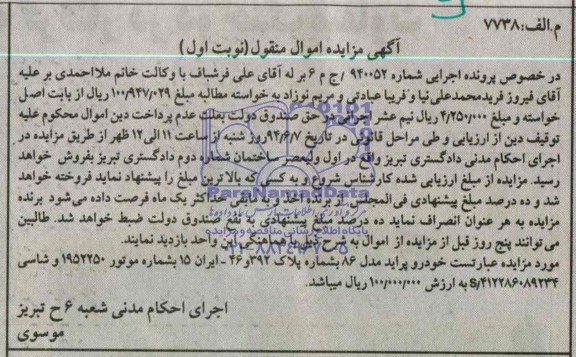 م.الف: ۷۷۳۸
آگهی مزایده اموال منقول (نوبت اول)
در خصوص پرونده اجرایی شماره ۹۴۰۰۵۲ / ج م ۶ بر له آقای علی فرشباف با وکالت خانم ملااحمدی بر علیه
آقای فیروز فرید محمدعلی نیا و فریبا عبادتی و مریم نوزاد به خواسته مطالبه مبلغ ۱۰۰/۹۴۷/۰۲۹ ریال از بابت اصل
خواسته و مبلغ ۴/۲۵۰/۰۰۰ ریال نیم عشر اجرایی در حق صندوق دولت بعلت عدم پرداخت دین اموال محکوم علیه
توقیف دین از ارزیابی و طی مراحل قانونی در تاریخ ۹۴/۶/۷ روز شنبه از ساعت ۱۱ الی ۱۲ ظهر از طریق مزایده در
اجرای احکام مدنی دادگستری تبریز واقع در اول ولیعصر ساختمان شماره دوم دادگستری تبریز بفروش خواهد
رسید. مزایده از مبلغ ارزیابی شده کارشناس شروع و به کسی که بالاترین مبلغ را پیشنهاد نماید فروخته خواهد
شد و ده درصد مبلغ پیشنهادی فی المجلس از برنده اخذ و به مابقی حداکثر یک ماه فرصت داده می شود برنده
مزایده به هر عنوان انصراف نماید ده درصد مبلغ پیشنهادی به نفع صندوق دولت ضبط خواهد شد. طالبین
می توانند پنج روز قبل از مزایده از اموال به شرح ذیل با هماهنگی این واحد بازدید نمایند.
مورد مزایده عبارتست خودرو پراید مدل ۸۶ بشماره پلاک ۳۹۲و۴۶ - ایران ۱۵ بشماره موتور ۱۹۵۲۲۵۰ و شاسی
S/۴۱۲۲۸۶۰۸۹۲۳۴ به ارزش ۱۰۰/۰۰۰/۰۰۰ ریال میباشد.
اجرای احکام مدنی شعبه ۶ ح تبریز
موسوی
ParsNamadData
پایگاه اطلاع رسانی مناقصه و مزایده